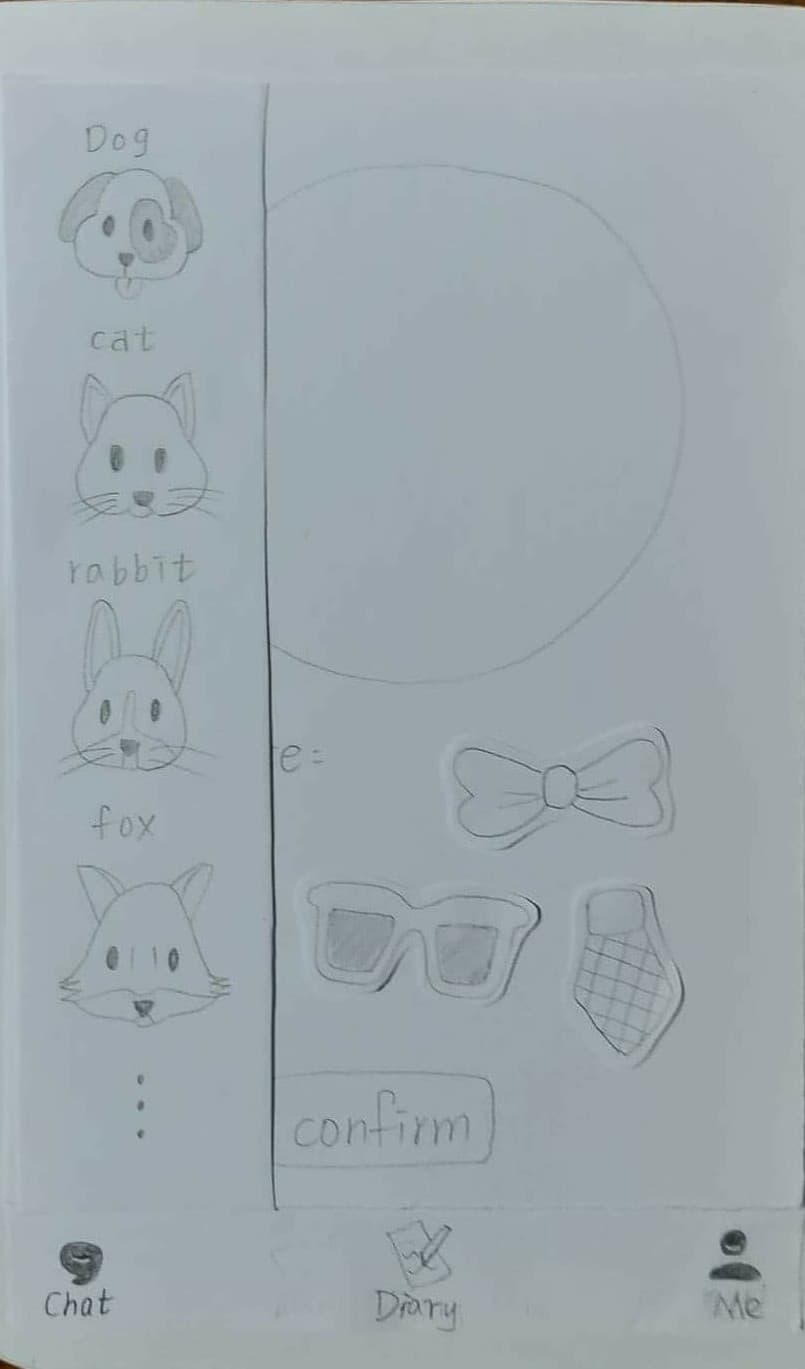 Dog
cat
rabbit
fox
e:
confirm
Chat
Diary
Me